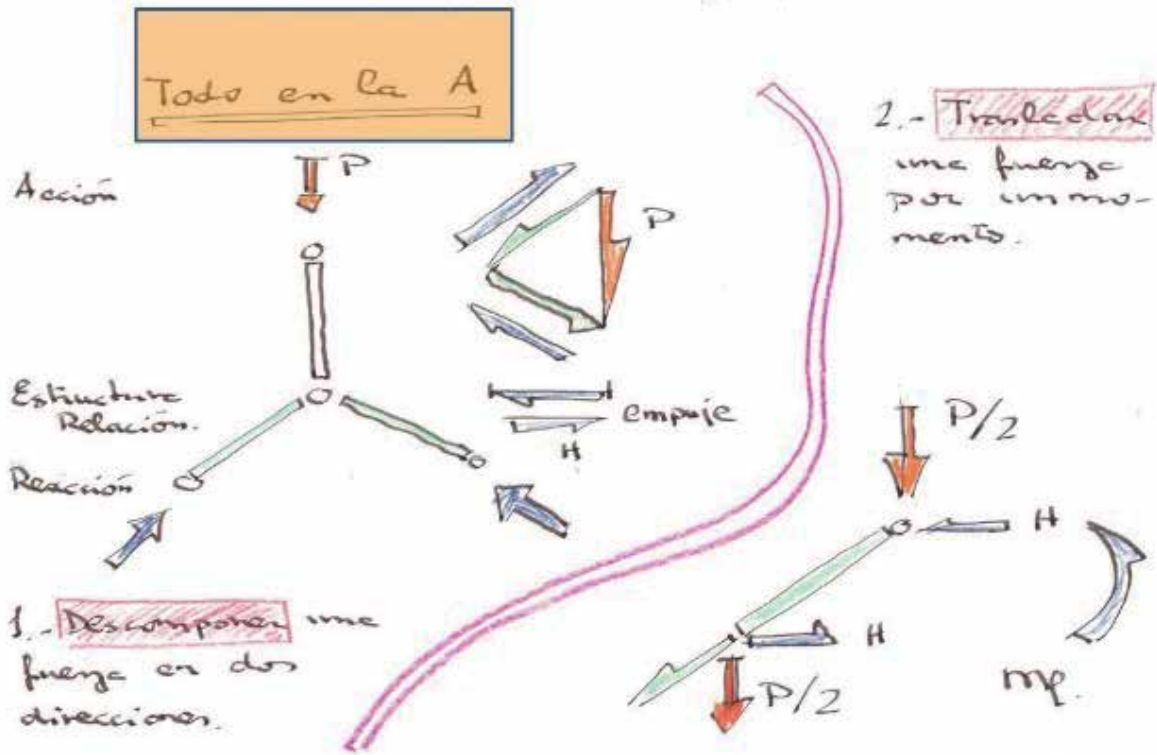 Todo en la A
Acción
P
P
Estructura
Relación.
empuje
H
Reacción
1.- Descomponer una
fuerza en dos
direcciones.
2.- Trasladar
una fuerza
por un mo-
mento.
P/2
H
H
P/2